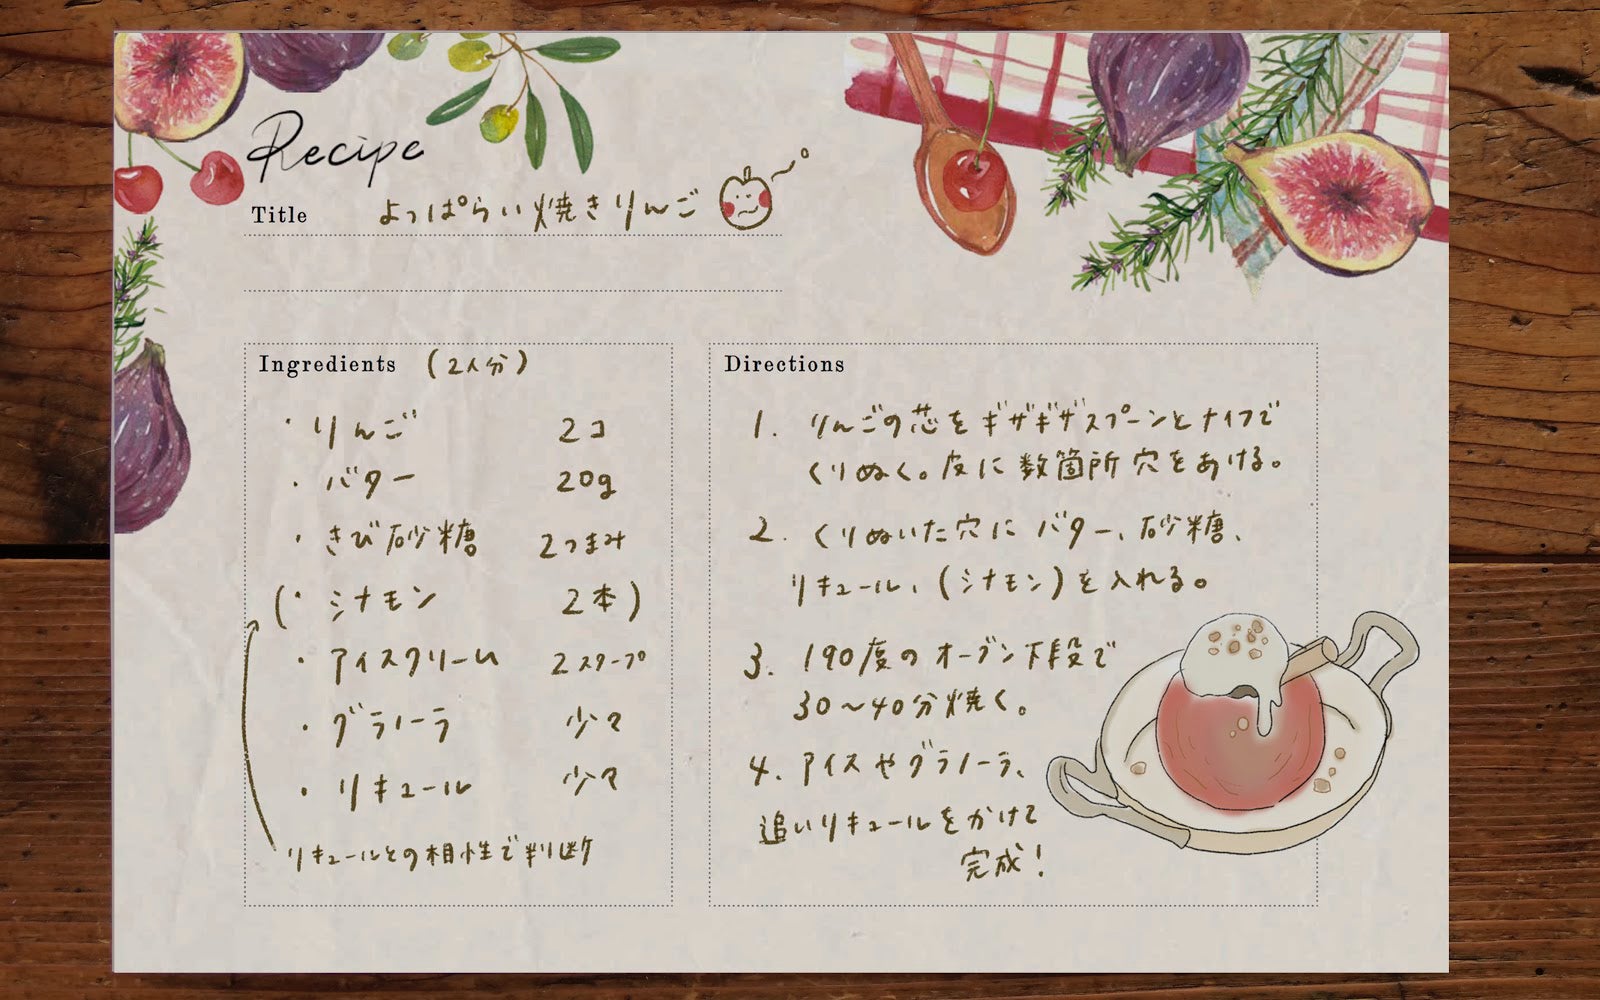 Recipe
Title よっぱらい焼きりんご
Ingredients (2人分)
・りんご 2コ
・バター 20g
・きび砂糖 2つまみ
(・シナモン 2本)
・アイスクリーム 2スクープ
・グラノーラ 少々
・リキュール 少々
リキュールとの相性で判断
Directions
1. りんごの芯をギザギザスプーンとナイフで
くりぬく。皮に数箇所穴をあける。
2. くりぬいた穴にバター、砂糖、
リキュール、(シナモン)を入れる。
3. 190度のオーブン下段で
30〜40分焼く。
4. アイスやグラノーラ、
追いリキュールをかけて
完成!